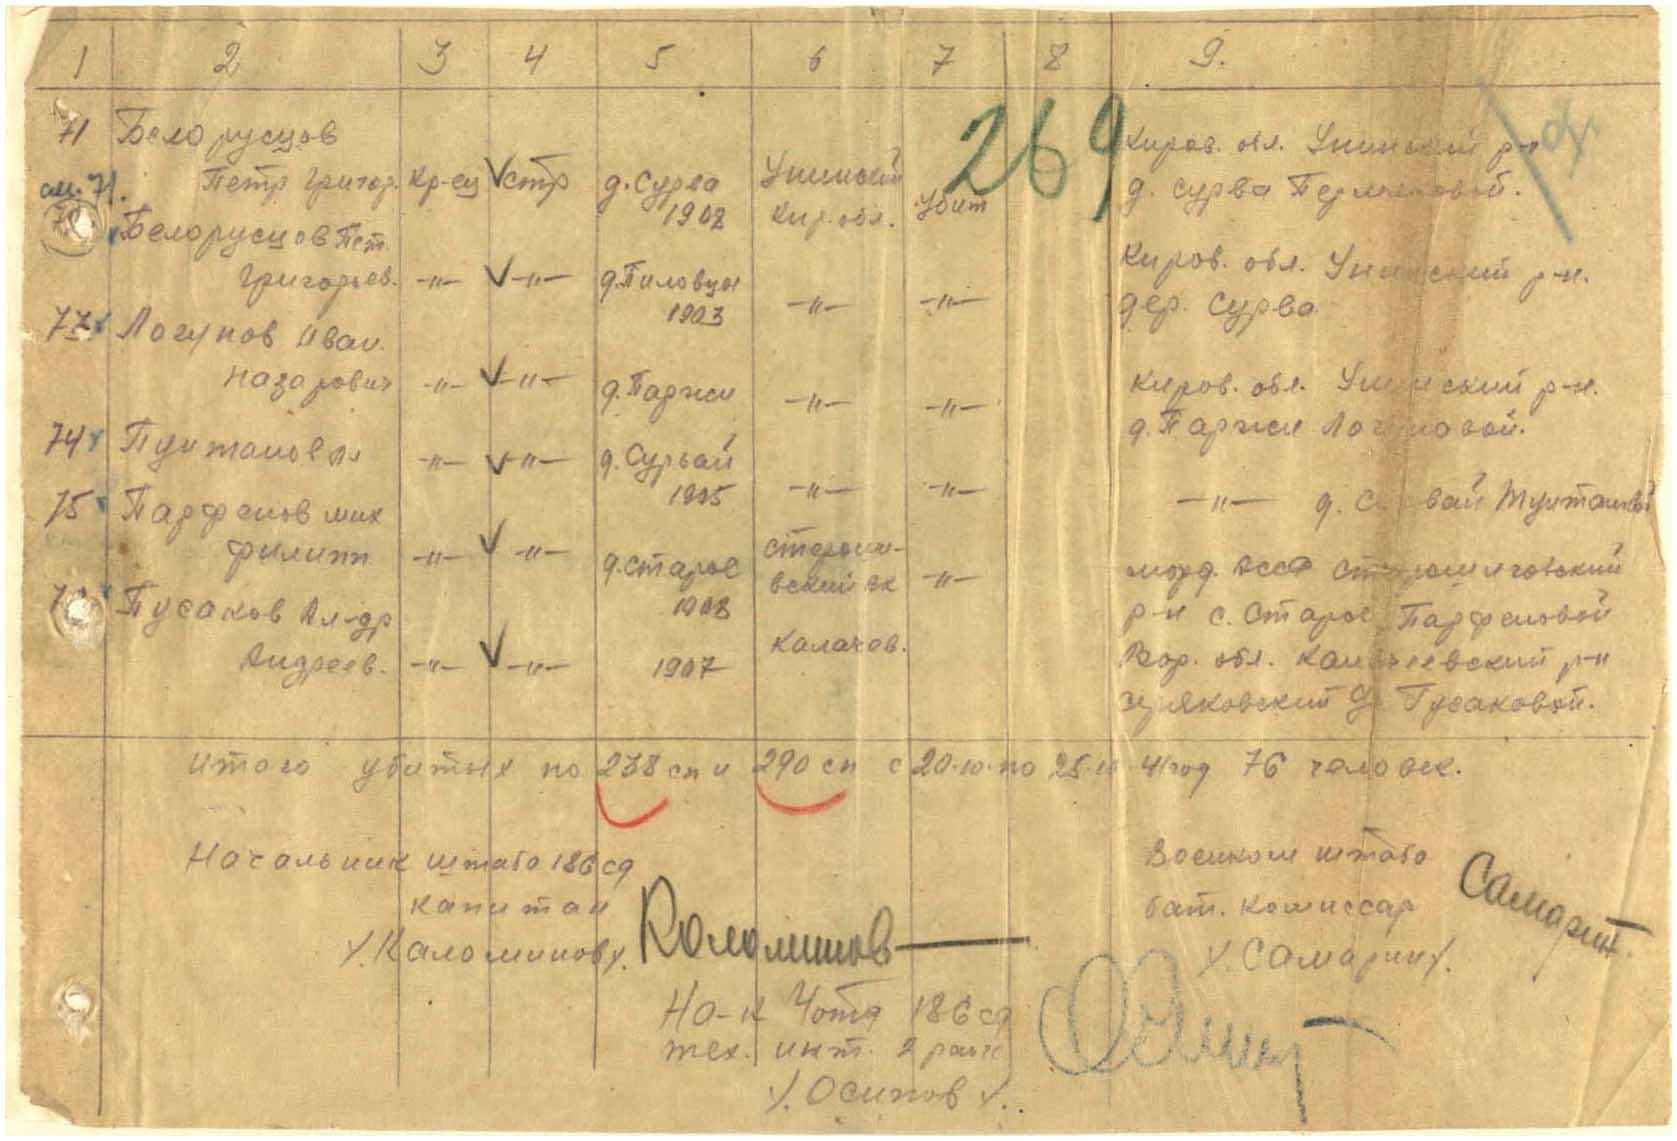 1 2 3 4 5 6 7 8 9.
269
71 Белорусцов
Петр Григор. Кр-ец стр д. Сурва Унинский Убит Киров. обл. Унинский р-н
1902 Кир. обл. д. Сурва Пермяковой.
см. 71.
Белорусцов Пет.
Григорьев. -"- -"- д. Пиловцы -"- -"- Киров. обл. Унинский р-н.
1903 дер. Сурва
Логунов Иван
Назарович -"- -"- д. Паржи -"- -"- Киров. обл. Унинский р-н.
д. Паржи Логуновой.
74 -"- -"- д. Сурвай -"- -"- -"- д.
1905
75 Парфенов Мих
Филипп -"- -"- д. Старое -"- морд. АССР
1908 р-н с. Старое Парфеновой
Пусаков Ал-др
Андреев. -"- -"- 1907 Калачев. Вор. обл. р-н
Гусаковой.
Итого убитых по 238 сп и 290 сп с 20.10. по 25.10 41 год 76 человек.
Начальник штаба 186 сд
капитан
/Каломинов/. Коломинов
Военком штаба
бат. комиссар
/Самарин/. Самарин.
На-к 4 отд 186 сд
тех. инт. 2 ранг
/Осипов/.